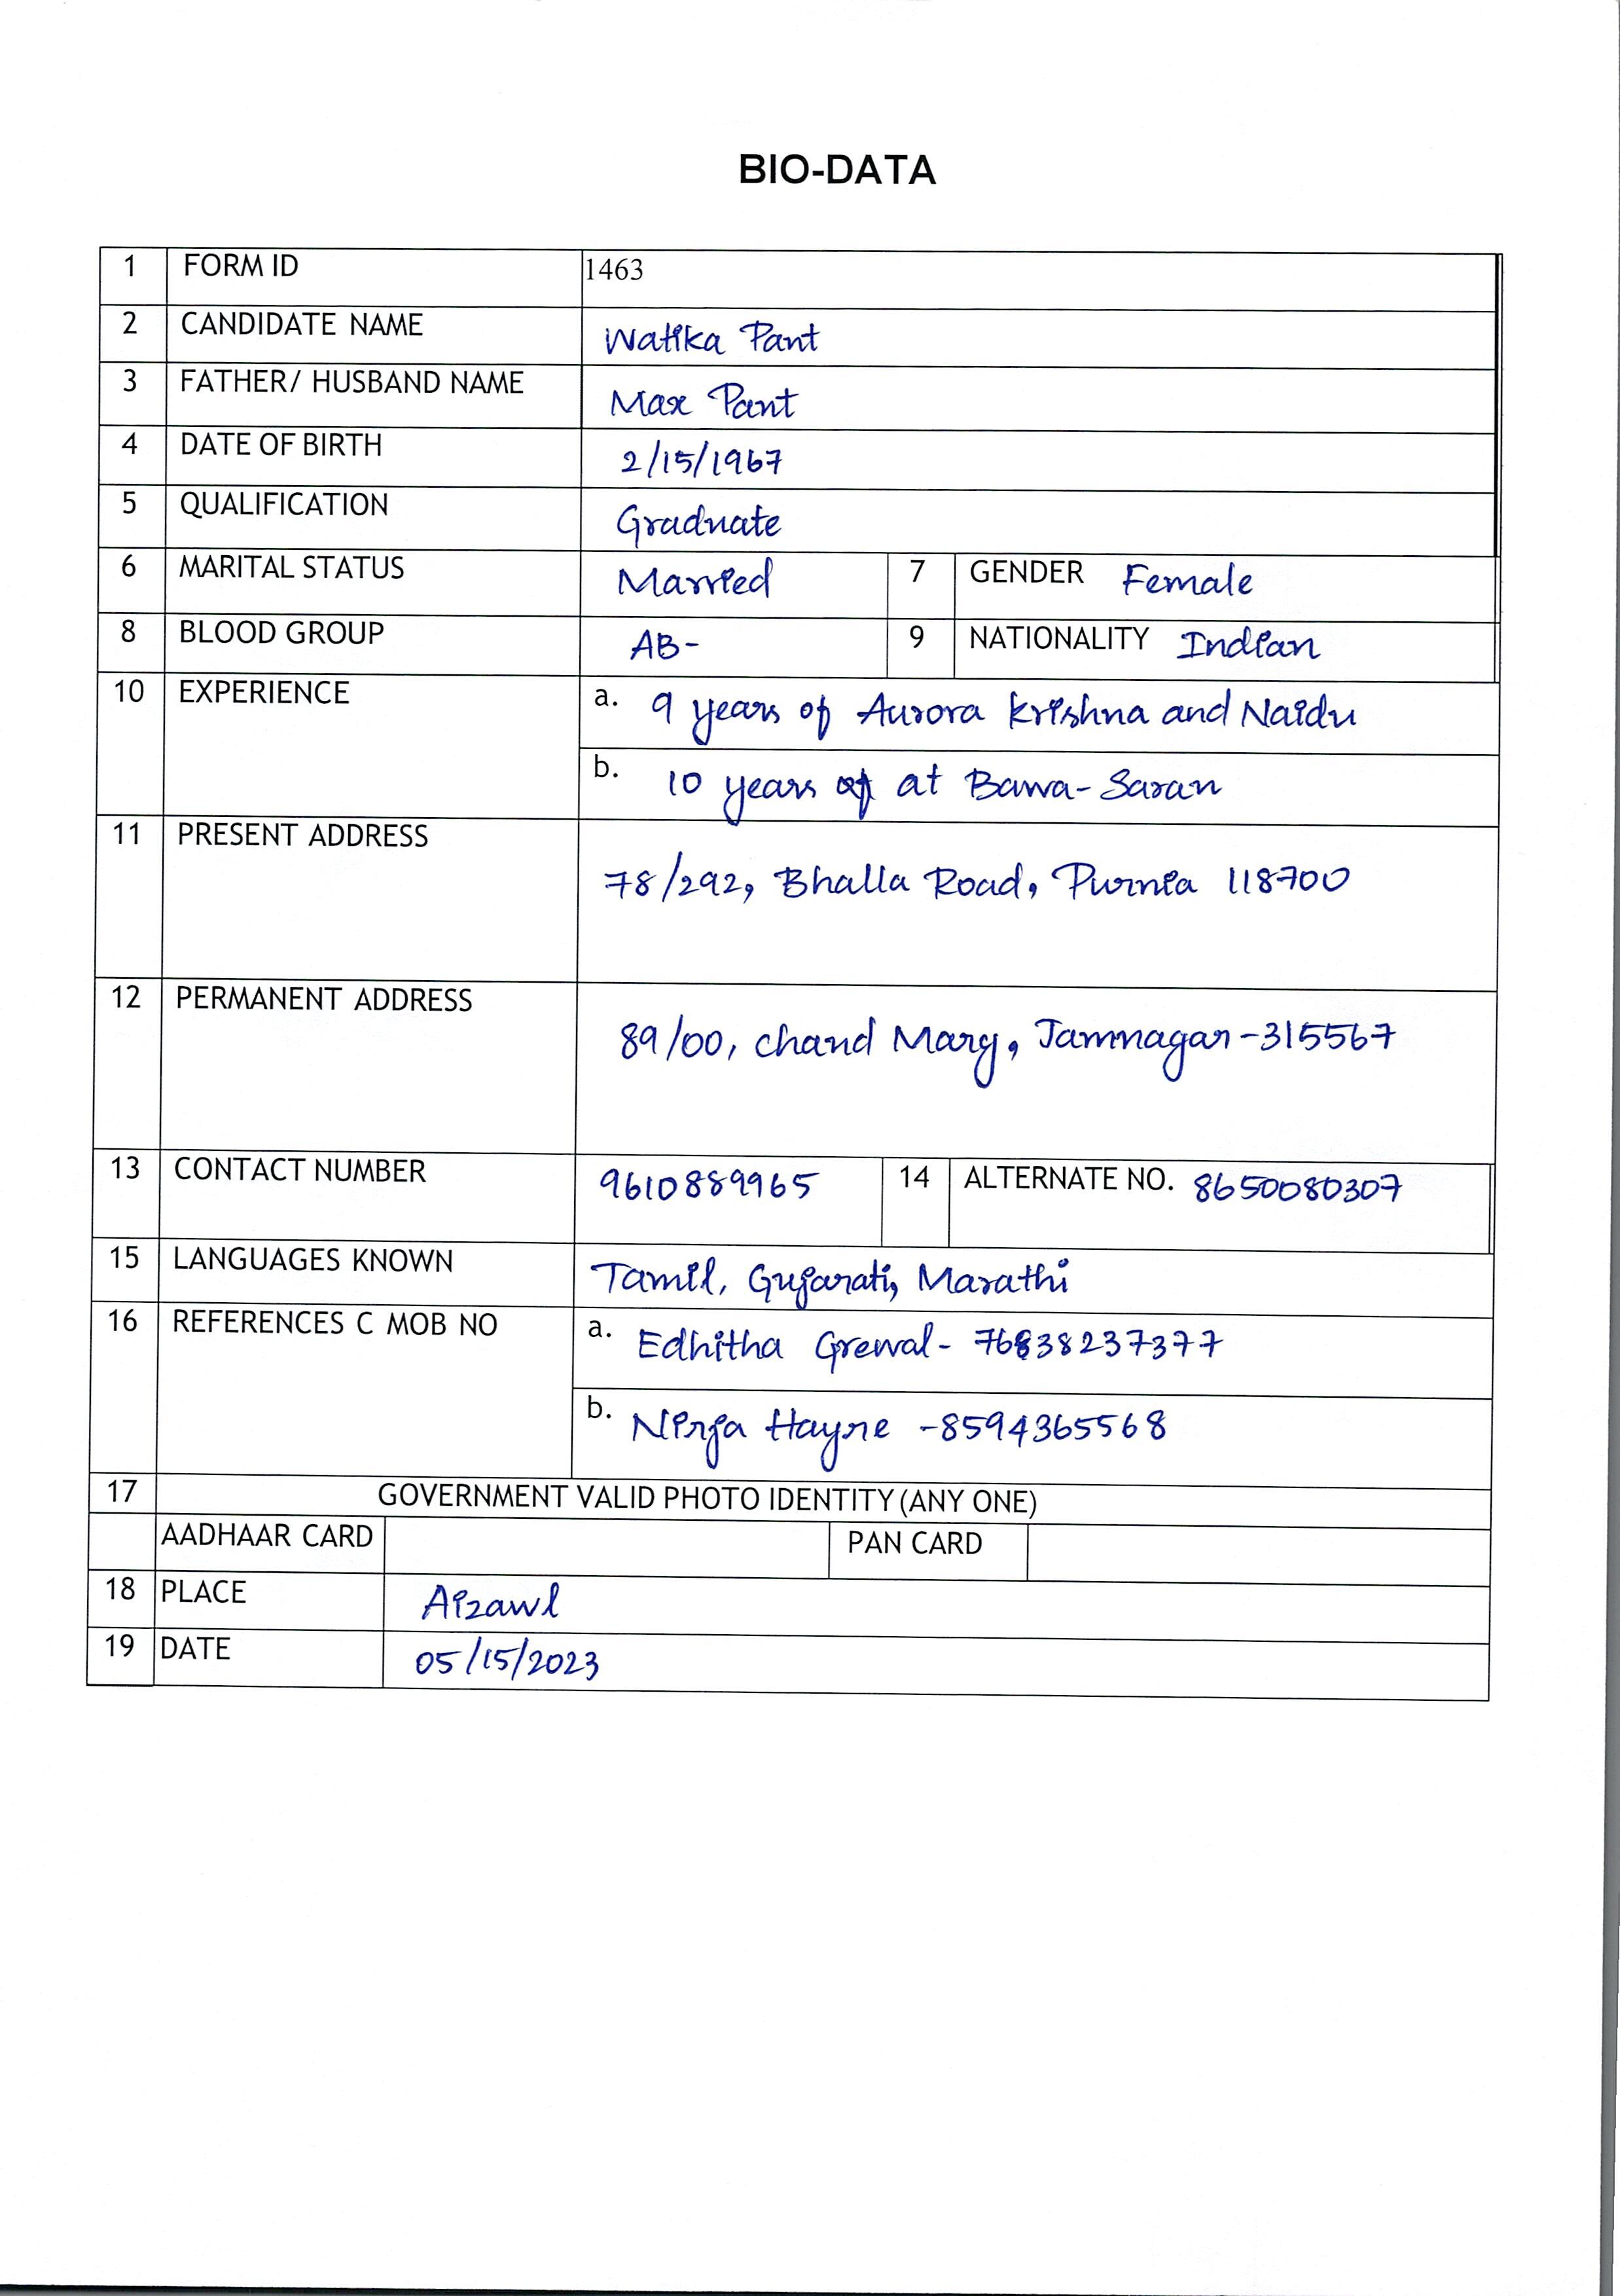 BIO-DATA
1 FORM ID 1463
2 CANDIDATE NAME Watika Pant
3 FATHER/ HUSBAND NAME Max Pant
4 DATE OF BIRTH 2/15/1967
5 QUALIFICATION Graduate
6 MARITAL STATUS Married 7 GENDER Female
8 BLOOD GROUP AB- 9 NATIONALITY Indian
10 EXPERIENCE a. 9 years of Aurora Krishna and Naidu
b. 10 years of at Bawa-Saran
11 PRESENT ADDRESS 78/292, Bhalla Road, Purnia 118700
12 PERMANENT ADDRESS 89/00, Chand Marg, Jamnagar-315567
13 CONTACT NUMBER 9610889965 14 ALTERNATE NO. 8650080307
15 LANGUAGES KNOWN Tamil, Gujarati, Marathi
16 REFERENCES C MOB NO a. Edhitha Grewal- 76838237377
b. Nirja Hayre -8594365568
17 GOVERNMENT VALID PHOTO IDENTITY (ANY ONE)
AADHAAR CARD PAN CARD
18 PLACE Aizawl
19 DATE 05/15/2023